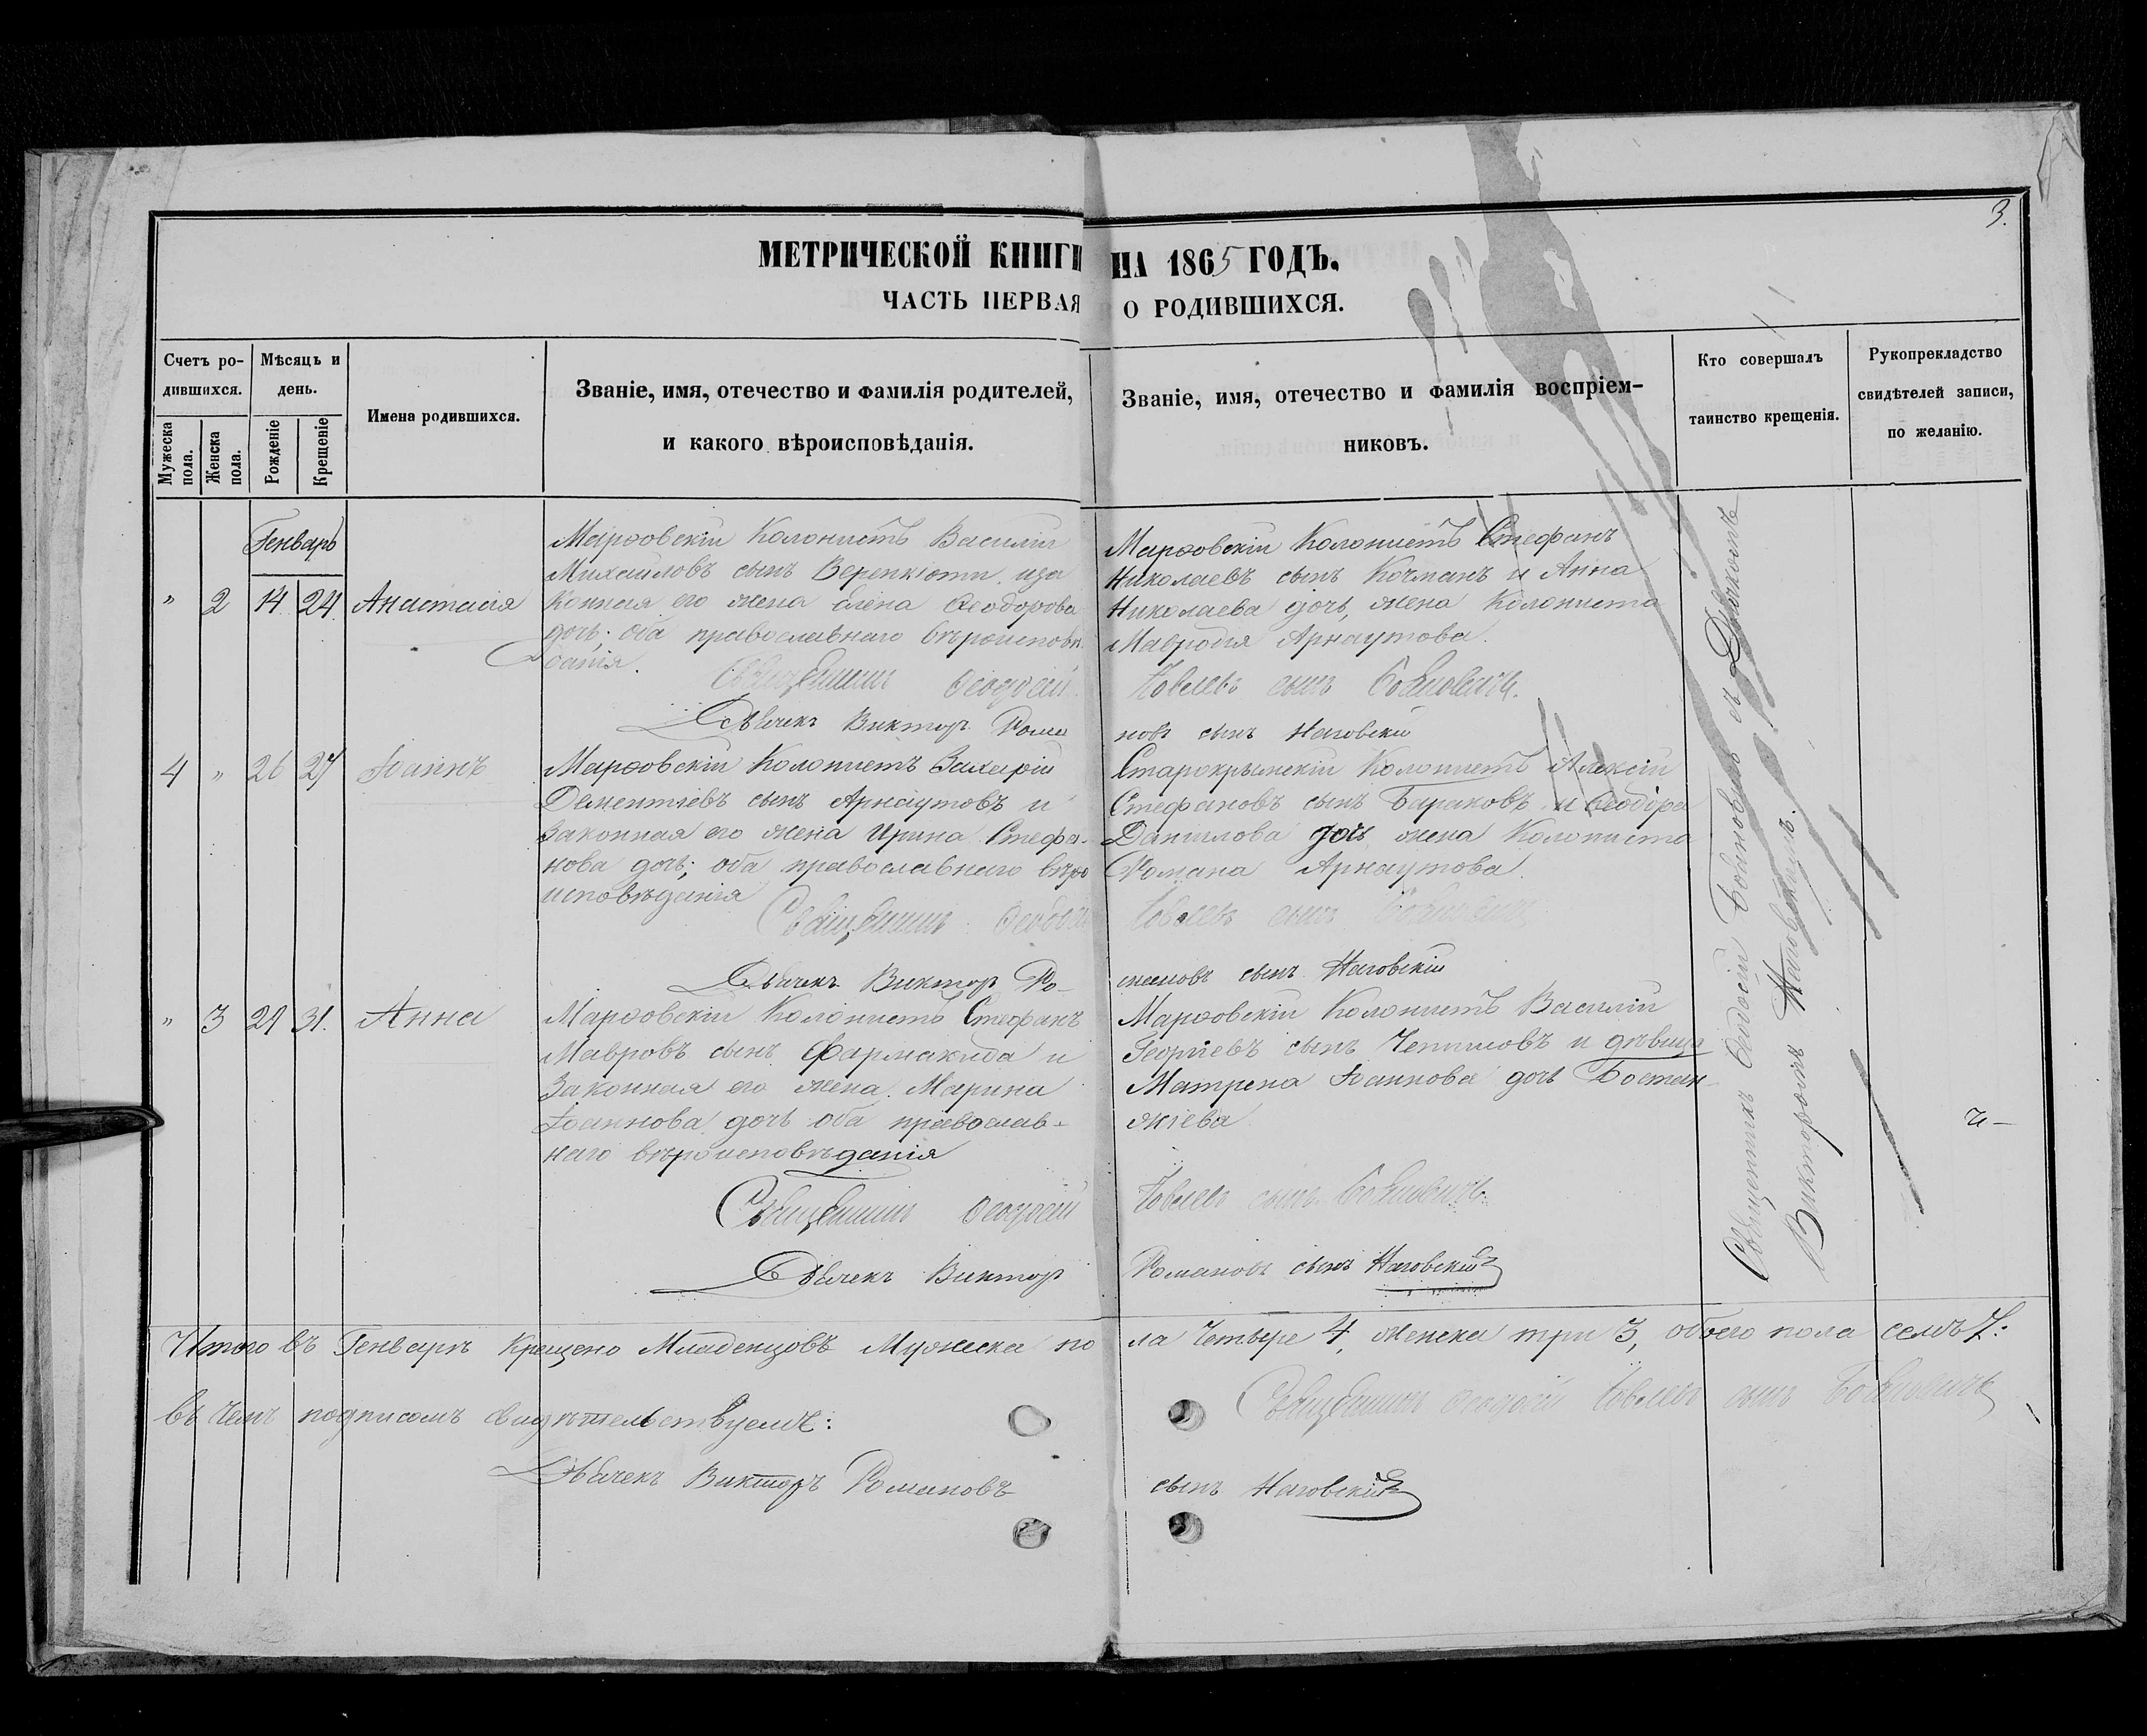 3.
МЕТРИЧЕСКОЙ КНИГИ НА 1865 ГОДЪ.
ЧАСТЬ ПЕРВАЯ О РОДИВШИХСЯ.
Счетъ ро-
дившихся.
Мужеска пола.
Женска пола.
Мѣсяцъ и
день.
Рожденіе
Крещеніе
Имена родившихся.
Званіе, имя, отечество и фамилія родителей,
и какого вѣроисповѣданія.
Званіе, имя, отечество и фамилія воспріем-
никовъ.
Кто совершалъ
таинство крещенія.
Рукоприкладство
свидѣтелей записи,
по желанію.
Генварь
" 2 14. 24. Анастасія
Марѳовскій Колонистъ Василій
Михайловъ сынъ и за
конная его жена Елена Ѳеодорова
дочь: оба православнаго вѣроисповѣ
данія.
Священникъ Ѳеодосій
Дьячекъ Викторъ Рома
Марѳовскій Колонистъ Стефанъ
Николаевъ сынъ Кочманъ и Анна
Николаева дочь, жена Колониста
Мавродія Арнаутова.
Іовлевъ сынъ Бойновичъ.
новъ сынъ Наговскій
4 " 26 27 Іоаннъ
Марѳовскій Колонистъ Захарій
Дементіевъ сынъ Арнаутовъ и
законная его жена Ирина Стефа-
нова дочь; оба православнаго вѣро
исповѣданія
Священникъ Ѳеодосій
Дьячекъ Викторъ Ро-
Старокрымскій Колонистъ Алексій
Стефановъ сынъ Бараковъ и Ѳеодора
Данилова дочь жена Колониста
Романа Арнаутова.
Іовлевъ сынъ Бойновичъ
мановъ сынъ Наговскій
" 3 29 31. Анна
Марѳовскій Колонистъ Стефанъ
Мавровъ сынъ Фармакида и
законная его жена Марина
Іоаннова дочь оба православ-
наго вѣроисповѣданія
Священникъ Ѳеодосій
Дьячекъ Викторъ
Марѳовскій Колонистъ Василій
Георгіевъ сынъ и дѣвица
Матрена Іоаннова дочь Бостан-
жіева
Іовлевъ сынъ Бойновичъ.
Романовъ сынъ Наговскій
Священникъ Ѳеодосій Бойновичъ съ Дьячкомъ
Викторомъ Наговскимъ.
Итого въ Генварѣ Крещено Младенцовъ Мужеска по ла Четыре 4, женска три 3, обоего пола семь 7.:
въ чемъ подписомъ свидѣтельствуемъ: Священникъ Ѳеодосій Іовлевъ сынъ Бойновичъ
Дьячекъ Викторъ Романовъ сынъ Наговскій